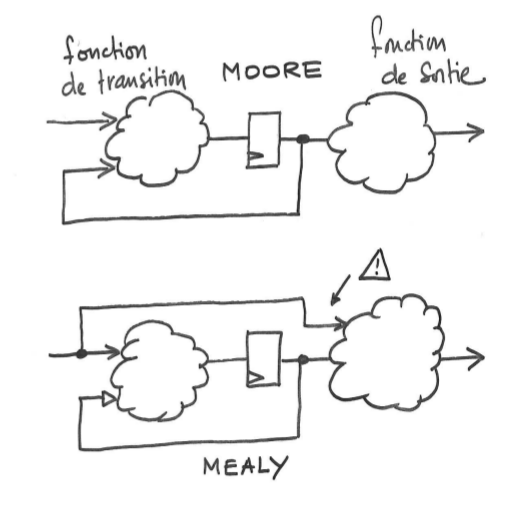 fonction
de transition
MOORE
fonction
de sortie
!
MEALY